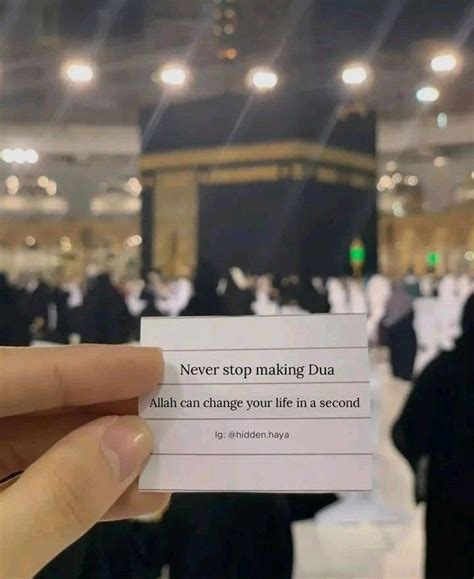 Never stop making Dua
Allah can change your life in a second
Ig: @hidden.haya